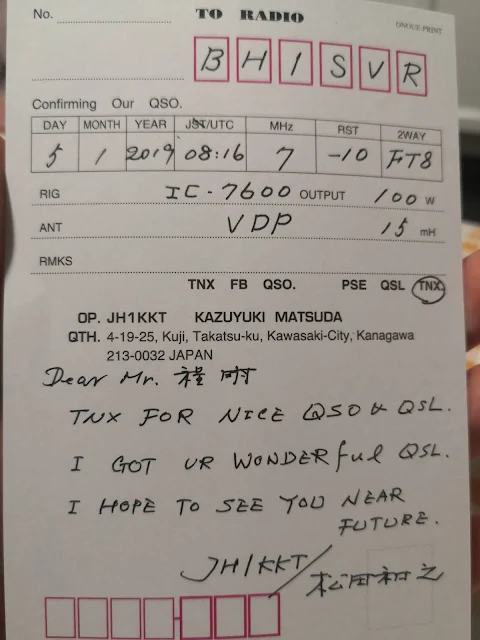 No. TO RADIO
ONOUE-PRINT
BH1SVR
Confirming Our QSO.
DAY MONTH YEAR JST/UTC MHz RST 2WAY
5 1 2019 08:16 7 -10 FT8
RIG IC-7600 OUTPUT 100 W
ANT VDP 15 mH
RMKS
TNX FB QSO. PSE QSL TNX
OP. JH1KKT KAZUYUKI MATSUDA
QTH. 4-19-25, Kuji, Takatsu-ku, Kawasaki-City, Kanagawa
213-0032 JAPAN
Dear Mr. 程
TNX FOR NICE QSO & QSL.
I GOT UR WONDERful QSL.
I HOPE TO SEE YOU NEAR
FUTURE.
JH1KKT/
松田 之